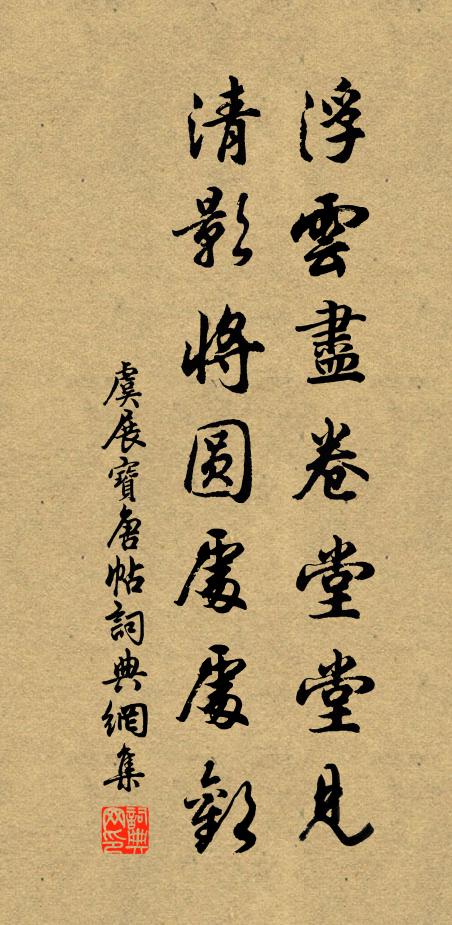 浮雲盡卷堂堂見
清影將圓處處觀
虞展寶唐帖詞典網集
詞典网印